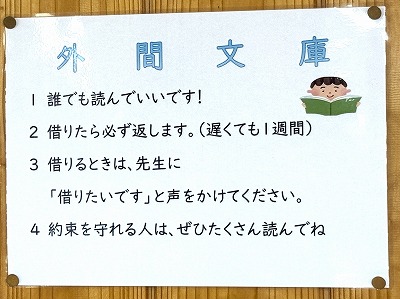 外間文庫
1 誰でも読んでいいです!
2 借りたら必ず返します。(遅くても1週間)
3 借りるときは、先生に
「借りたいです」と声をかけてください。
4 約束を守れる人は、ぜひたくさん読んでね